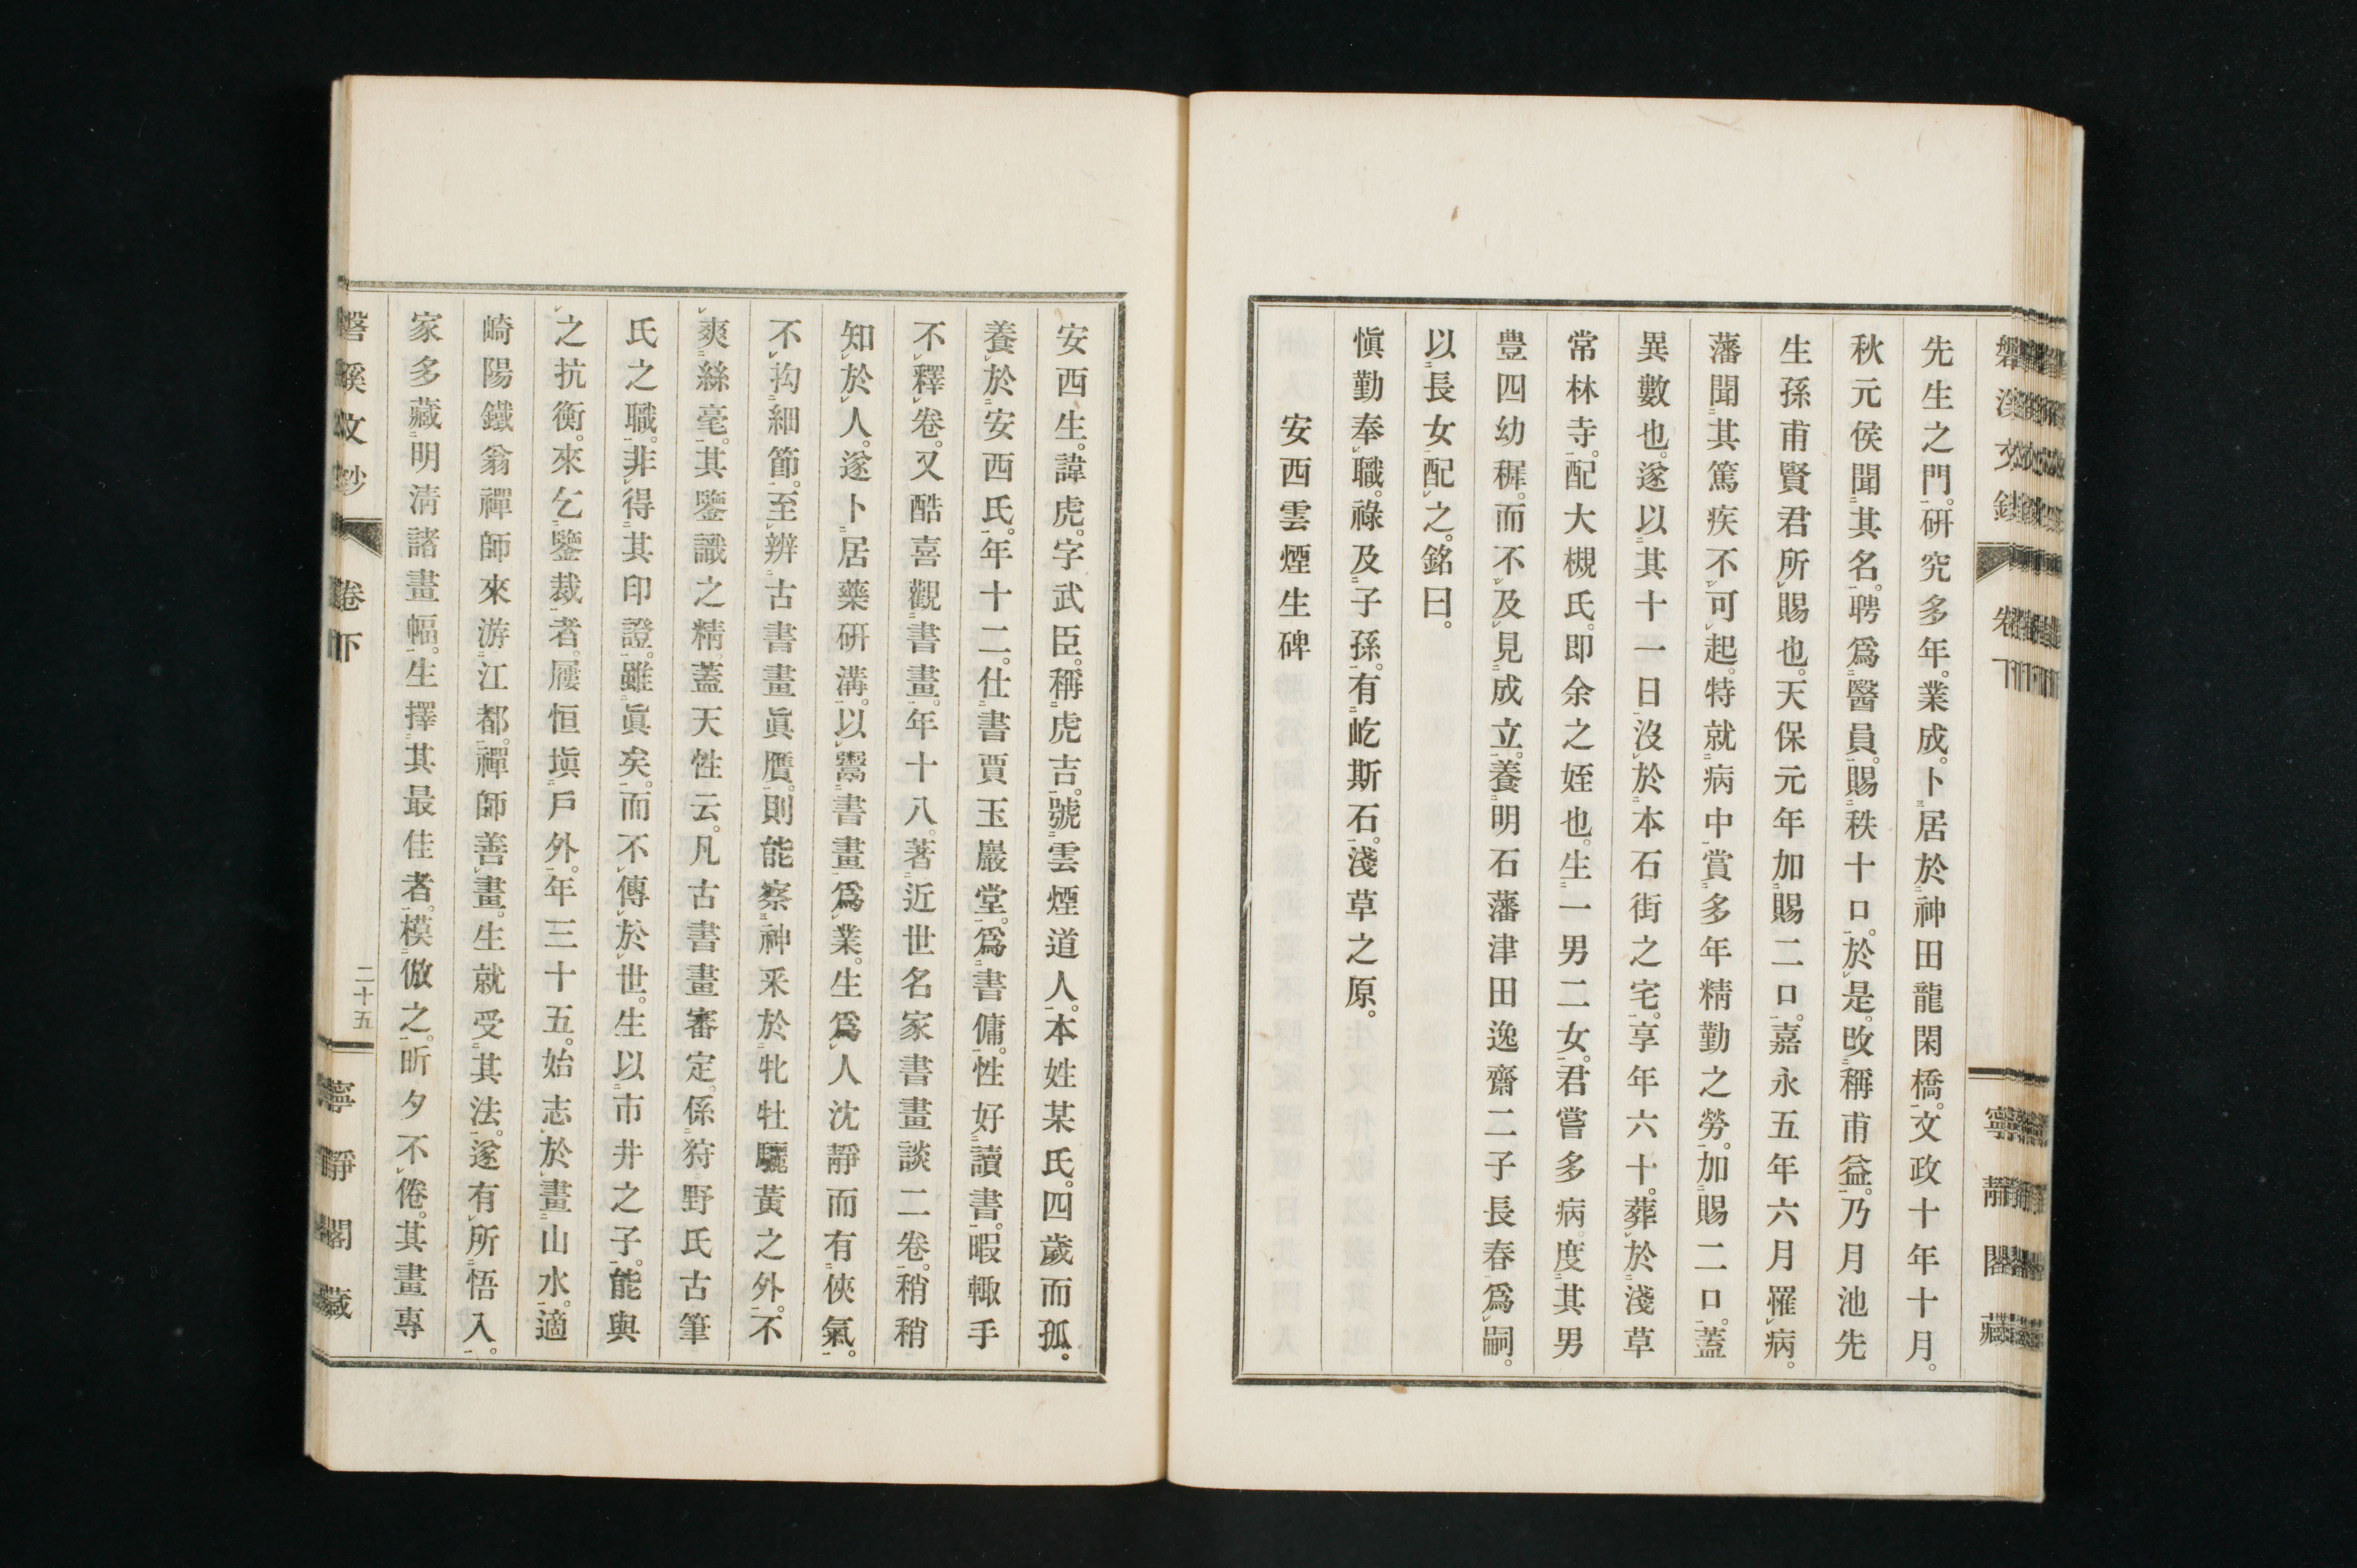 先生之門。研究多年。業成。卜居於神田龍閑橋。文政十年十月。
秋元侯聞其名。聘爲醫員。賜秩十口。於是。改稱甫益。乃月池先
生孫甫賢君所賜也。天保元年加賜二口。嘉永五年六月罹病。
藩聞其篤疾不可起。特就病中賞多年精勤之勞。加賜二口。蓋
異數也。遂以其十一日沒於本石街之宅。享年六十。葬於淺草
常林寺。配大槻氏。即余之姪也。生一男二女。君嘗多病。度其男
豊四幼穉。而不及見成立。養明石藩津田逸齋二子長春爲嗣。
以長女配之。銘曰。
愼勤奉職。祿及子孫。有屹斯石。淺草之原。
安西雲煙生碑
安西生。諱虎。字武臣。稱虎吉。號雲煙道人。本姓某氏。四歲而孤。
養於安西氏。年十二。仕書賈玉巖堂。爲書傭。性好讀書。暇輙手
不釋卷。又酷喜觀書畫。年十八。著近世名家書畫談二卷。稍稍
知於人。遂卜居藥研溝。以鬻書畫爲業。生爲人沈靜而有俠氣。
不拘細節。至辨古書畫眞贋。則能察神釆於牝牡驪黃之外。不
爽絲毫。其鑒識之精。蓋天性云。凡古書畫審定。係狩野氏古筆
氏之職。非得其印證。雖眞矣。而不傳於世。生以市井之子。能與
之抗衡。來乞鑒裁者。屨恒塡戶外。年三十五。始志於畫山水。適
崎陽鐵翁禪師來游江都。禪師善畫。生就受其法。遂有所悟入。
家多藏明淸諸畫幅。生擇其最佳者。模倣之。昕夕不倦。其畫專
磐溪文鈔
卷下
二十五
寧靜閣藏